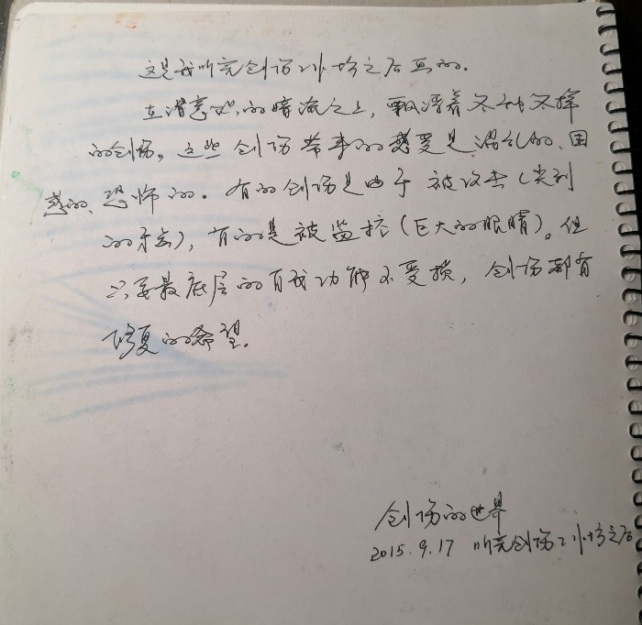 这是我听完创伤工作坊之后画的。
在潜意识的暗流之上，飘浮着各种各样
的创伤。这些创伤带来的感受是混乱的、困
惑的、恐怖的。有的创伤是由于被攻击（尖利
的牙齿），有的是被监控（巨大的眼睛）。但
只要最底层的自我功能不受损，创伤都有
修复的希望。
创伤的世界
2015.9.17 听完创伤工作坊之后